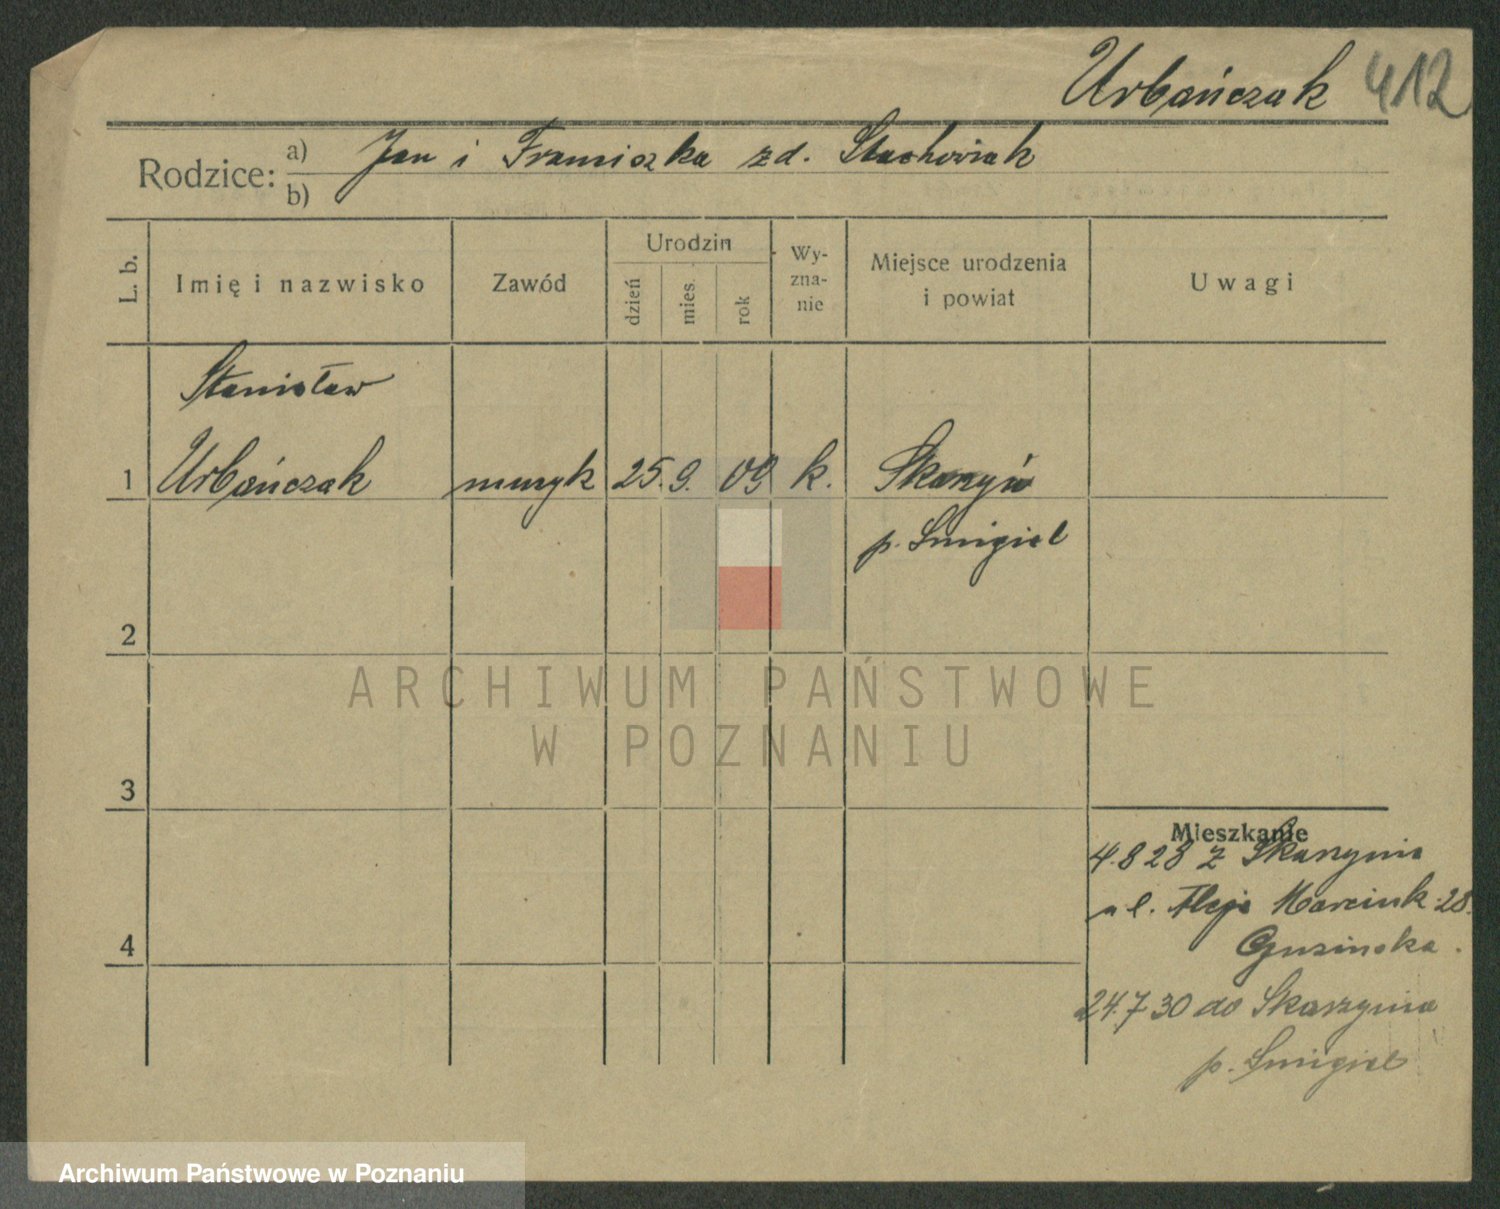 Urbańczak 412
Rodzice: a) Jan i Franciszka zd. Stachowiak
b)
L. b.
Imię i nazwisko
Zawód
Urodzin
dzień
mies.
rok
Wy-
zna-
nie
Miejsce urodzenia
i powiat
Uwagi
Stanisław
1 Urbańczak muzyk 25. 9. 09 k. Skarzyń
p. Śmigiel
2
ARCHIWUM PAŃSTWOWE
W POZNANIU
3
Mieszkanie
4.8 28 z Skarzynia
ul. Aleje Marcink. 28.
4
24.7 30 do Skarzynia
p. Śmigiel
Archiwum Państwowe w Poznaniu